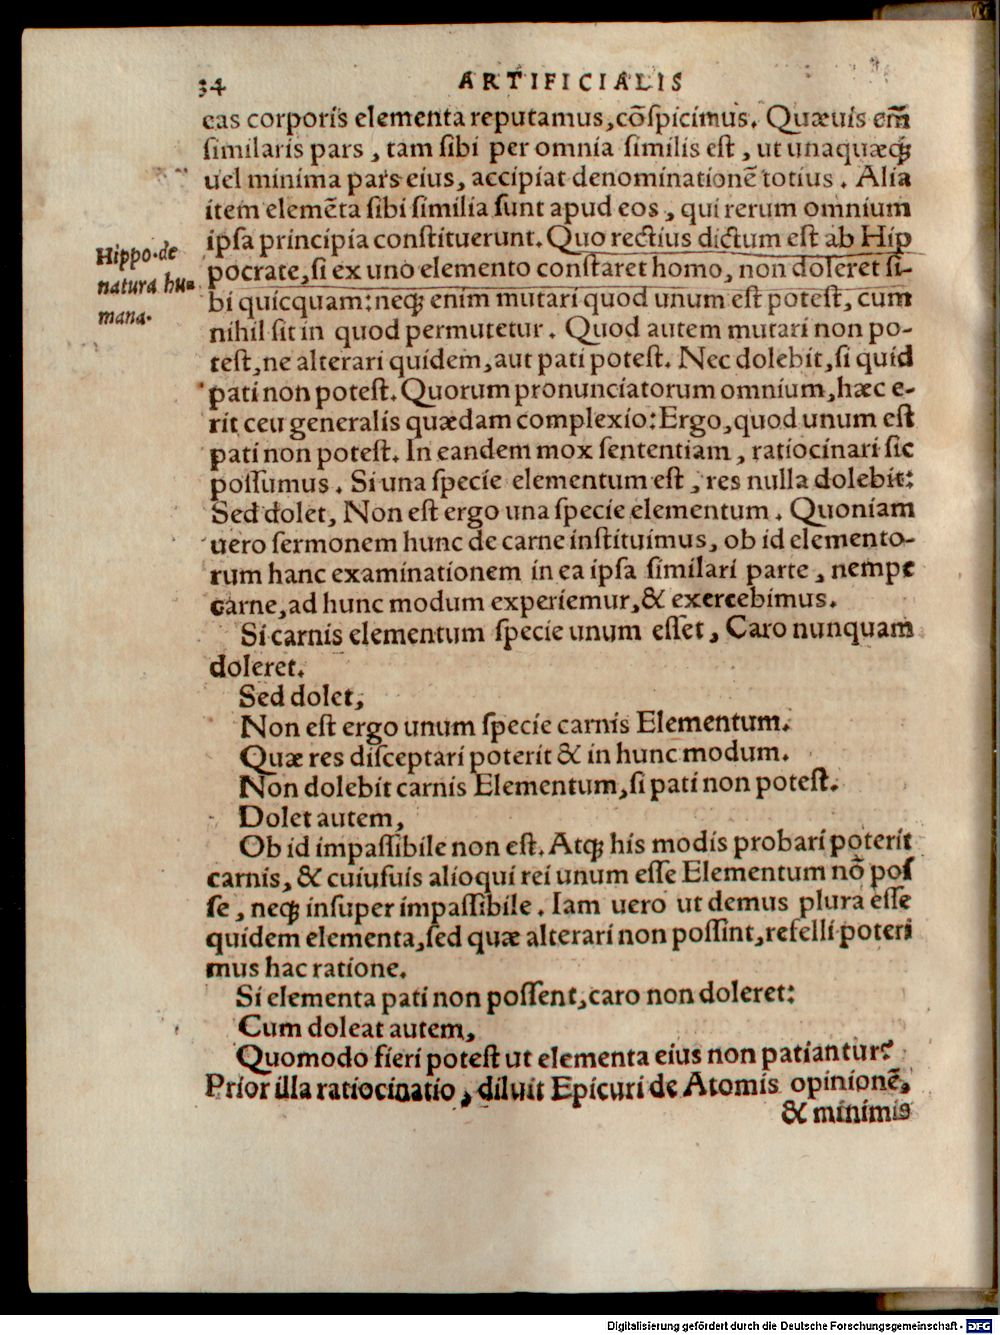 34 ARTIFICIALIS
eas corporis elementa reputamus, cõſpicimus. Quæuis em̃
ſimilaris pars, tam ſibi per omnia ſimilis eſt, ut unaquæq;
uel minima pars eius, accipiat denominationẽ totius. Alia
item elemẽta ſibi ſimilia ſunt apud eos, qui rerum omnium
ipſa principia conſtituerunt. Quo rectius dictum eſt ab Hip
Hippo. de
natura hu-
mana.
pocrate, ſi ex uno elemento conſtaret homo, non doleret ſi-
bi quicquam: neq; enim mutari quod unum eſt poteſt, cum
nihil ſit in quod permutetur. Quod autem mutari non po-
teſt, ne alterari quidem, aut pati poteſt. Nec dolebit, ſi quid
pati non poteſt. Quorum pronunciatorum omnium, hæc e-
rit ceu generalis quædam complexio: Ergo, quod unum eſt
pati non poteſt. In eandem mox ſententiam, ratiocinari ſic
poſſumus. Si una ſpecie elementum eſt, res nulla dolebit:
Sed dolet, Non eſt ergo una ſpecie elementum. Quoniam
uero ſermonem hunc de carne inſtituimus, ob id elemento-
rum hanc examinationem in ea ipſa ſimilari parte, nempe
carne, ad hunc modum experiemur, & exercebimus.
Si carnis elementum ſpecie unum eſſet, Caro nunquam
doleret.
Sed dolet,
Non eſt ergo unum ſpecie carnis Elementum.
Quæ res diſceptari poterit & in hunc modum.
Non dolebit carnis Elementum, ſi pati non poteſt.
Dolet autem,
Ob id impaſſibile non eſt. Atq; his modis probari poterit
carnis, & cuiuſuis alioqui rei unum eſſe Elementum nõ poſ
ſe, neq; inſuper impaſſibile. Iam uero ut demus plura eſſe
quidem elementa, ſed quæ alterari non poſſint, refelli poteri
mus hac ratione.
Si elementa pati non poſſent, caro non doleret:
Cum doleat autem,
Quomodo fieri poteſt ut elementa eius non patiantur?
Prior illa ratiocinatio, diluit Epicuri de Atomis opinionẽ,
& minimis
Digitalisierung gefördert durch die Deutsche Forschungsgemeinschaft - DFG